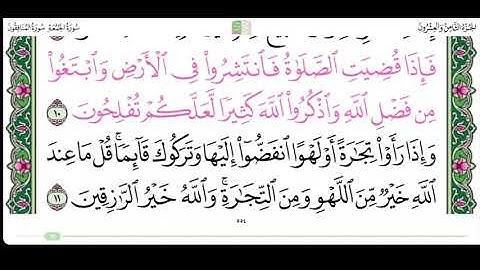 الجزء الثامن والعشرون سورة الجمعة سورة المنافقون
فَإِذَا قُضِيَتِ ٱلصَّلَوٰةُ فَٱنتَشِرُوا۟ فِى ٱلْأَرْضِ وَٱبْتَغُوا۟
مِن فَضْلِ ٱللَّهِ وَٱذْكُرُوا۟ ٱللَّهَ كَثِيرًا لَّعَلَّكُمْ تُفْلِحُونَ ١٠
وَإِذَا رَأَوْا۟ تِجَٰرَةً أَوْ لَهْوًا ٱنفَضُّوٓا۟ إِلَيْهَا وَتَرَكُوكَ قَآئِمًا ۚ قُلْ مَا عِندَ
ٱللَّهِ خَيْرٌ مِّنَ ٱللَّهْوِ وَمِنَ ٱلتِّجَٰرَةِ ۚ وَٱللَّهُ خَيْرُ ٱلرَّٰزِقِينَ ١١
٥٥٤